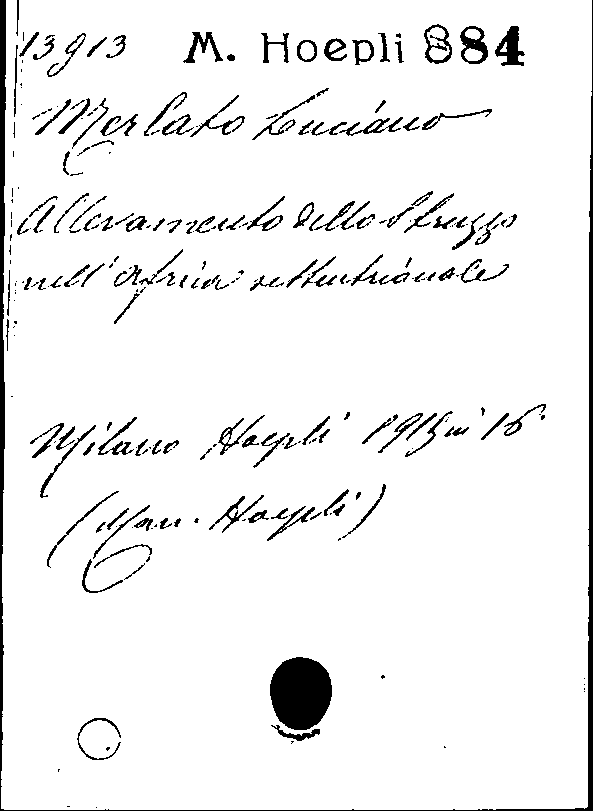 13913 M. Hoepli 884
Merlato Luciano
Allevamento dello Struzzo
nell'Africa settentrionale
Milano Hoepli 1915 in 16°
(Man. Hoepli)